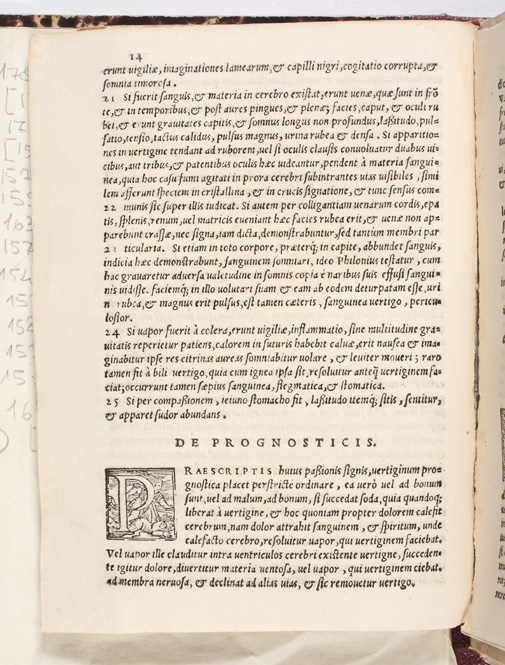 14
erunt uigiliæ, imaginationes lamearum, & capilli nigri, cogitatio corrupta, &
somnia timorosa.
21 Si fuerit sanguis, & materia in cerebro existat, erunt uenæ, quæ sunt in frõ
te, & in temporibus, & post aures pingues, & plenæ; facies, caput, & oculi ru
bei, & erunt grauitates capitis, & somnus longus non profundus, lassitudo, pul-
satio, tensio, tactus calidus, pulsus magnus, urina rubea & densa. Si apparitio-
nes in uertigine tendant ad ruborem, uel si oculis clausis conuoluatur duabus ui-
cibus, aut tribus, & patentibus oculis hæc uideantur, pendent à materia sangui-
nea, quia hoc casu fumi agitati in prora cerebri subintrantes uias uisibiles, simi
lem afferunt speciem in cristallina, & in crucis signatione, & tunc sensus com-
22 munis sic super illis iudicat. Si autem per colligantiam uenarum cordis, epa
tis, splenis, renum, uel matricis eueniant hæc facies rubea erit, & uenæ non ap-
parebunt crassæ, nec signa, iam dicta, demonstrabuntur, sed tantum membri par
23 ticularia. Si etiam in toto corpore, præterq; in capite, abbundet sanguis,
indicia hæc demonstrabunt, sanguinem somniari, ideo Philonius testatur, cum
hac grauaretur aduersa ualetudine in somnis copia è naribus suis effusi sangui-
nis uidisse. faciemq; in illo uolutari suam & eam ab eodem deturpatam esse, uri
n rubea, & magnus erit pulsus, est tamen cæteris, sanguinea uertigo, pericu
losior.
24 Si uapor fuerit à colera, erunt uigiliæ, inflammatio, sine multitudine gra-
uitatis reperietur patiens, calorem in futuris habebit caluæ, erit nausea & ima
ginabitur ipse res citrinas aureas somniabitur uolare, & leuiter moueri; raro
tamen fit à bili uertigo, quia cum ignea ipsa sit, resoluitur anteq̃ uertiginem fa-
ciat; occurrunt tamen sæpius sanguinea, flegmatica, & stomatica.
25 Si per compassionem, ieiuno stomacho fit, lassitudo itemq; sitis, sentitur,
& apparet sudor abundans.
DE PROGNOSTICIS.
PRAESCRIPTIS huius passionis signis, uertiginum pro-
gnostica placet perstricte ordinare, ea uerò uel ad bonum
sunt, uel ad malum, ad bonum, si succedat soda, quia quandoq;
liberat à uertigine, & hoc quoniam propter dolorem calefit
cerebrum, nam dolor attrahit sanguinem, & spiritum, unde
calefacto cerebro, resoluitur uapor, qui uertiginem faciebat.
Vel uapor ille clauditur intra uentriculos cerebri existente uertigne, succeden-
te igitur dolore, diuertitur materia uentosa, uel uapor, qui uertiginem ciebat,
ad membra neruosa, & declinat ad alias uias, & sic remouetur uertigo.